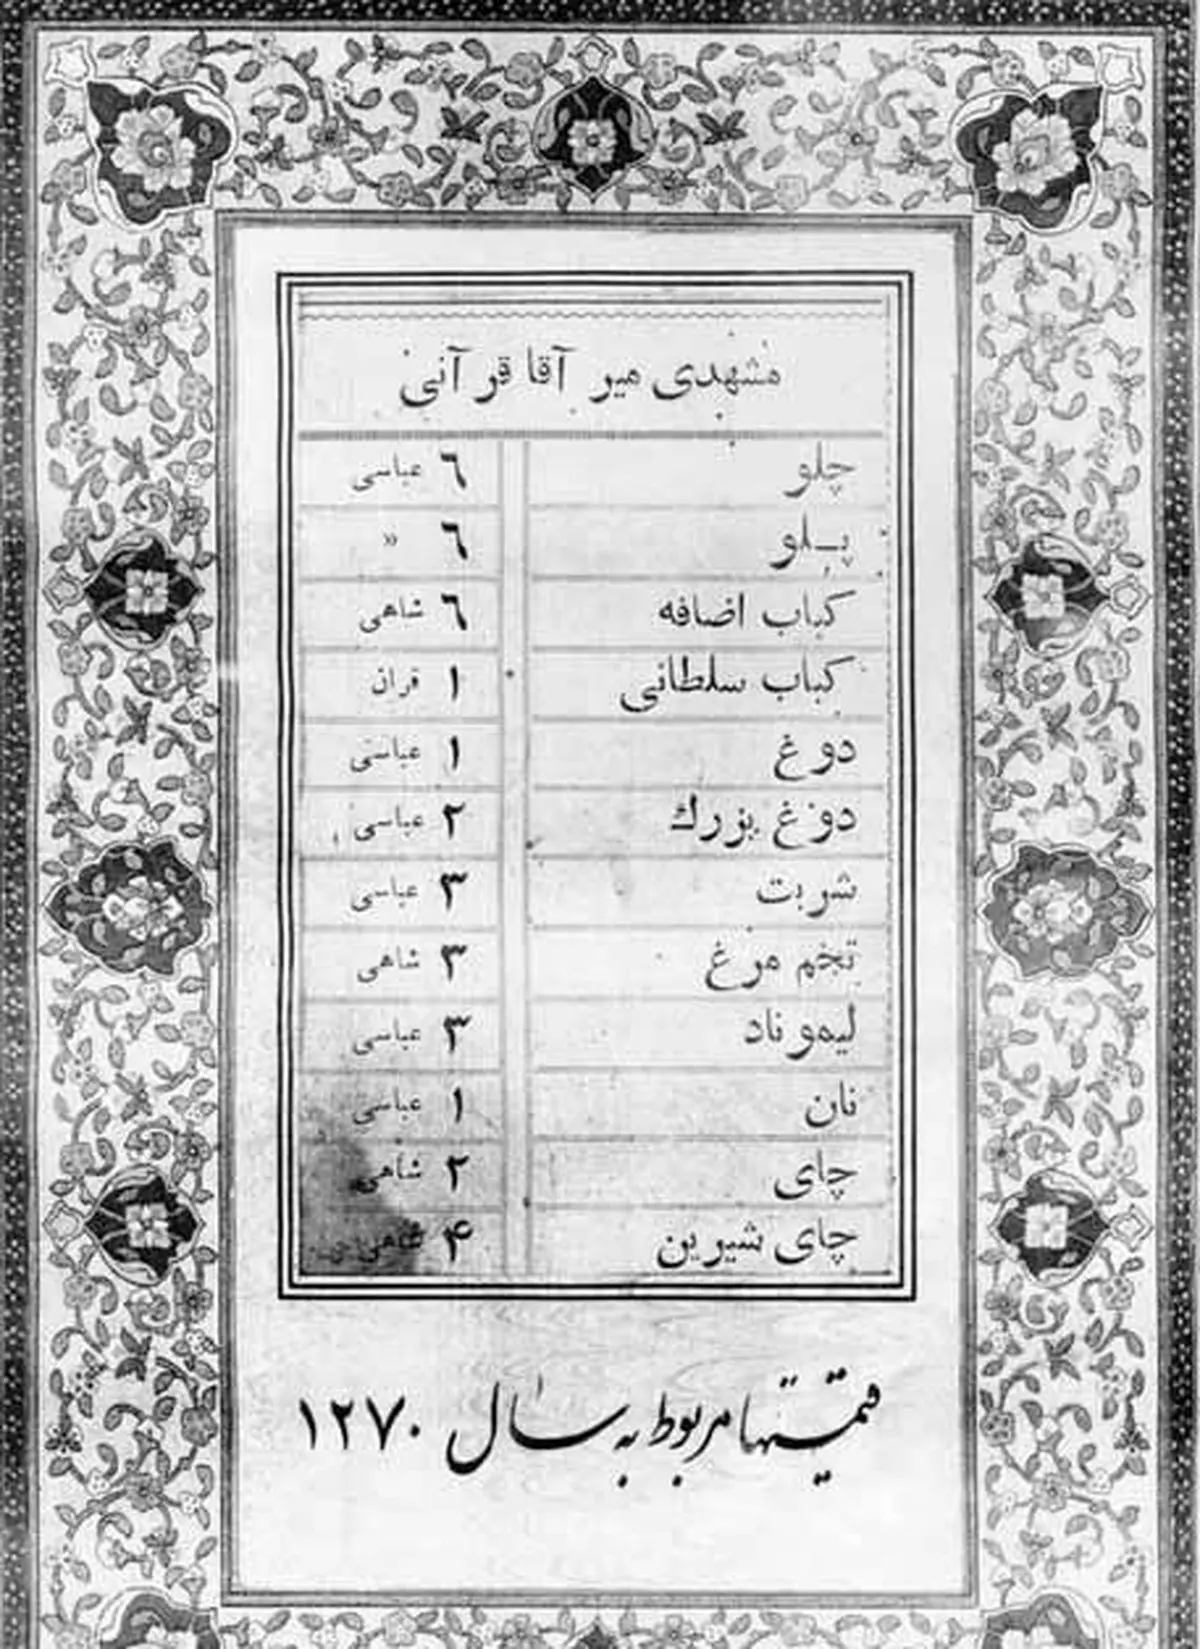 مشهدی میر آقا قرآنی
چلو ٦ عباسی
پلو ٦ »
کباب اضافه ٦ شاهی
کباب سلطانی ۱ قران
دوغ ۱ عباسی
دوغ بزرك ۲ عباسی
شربت ۳ عباسی
تخم مرغ ۳ شاهی
لیموناد ۳ عباسی
نان ۱ عباسی
چای ۲ شاهی
چای شیرین ۴ شاهی
قیمتها مربوط به سال ۱۲۷۰